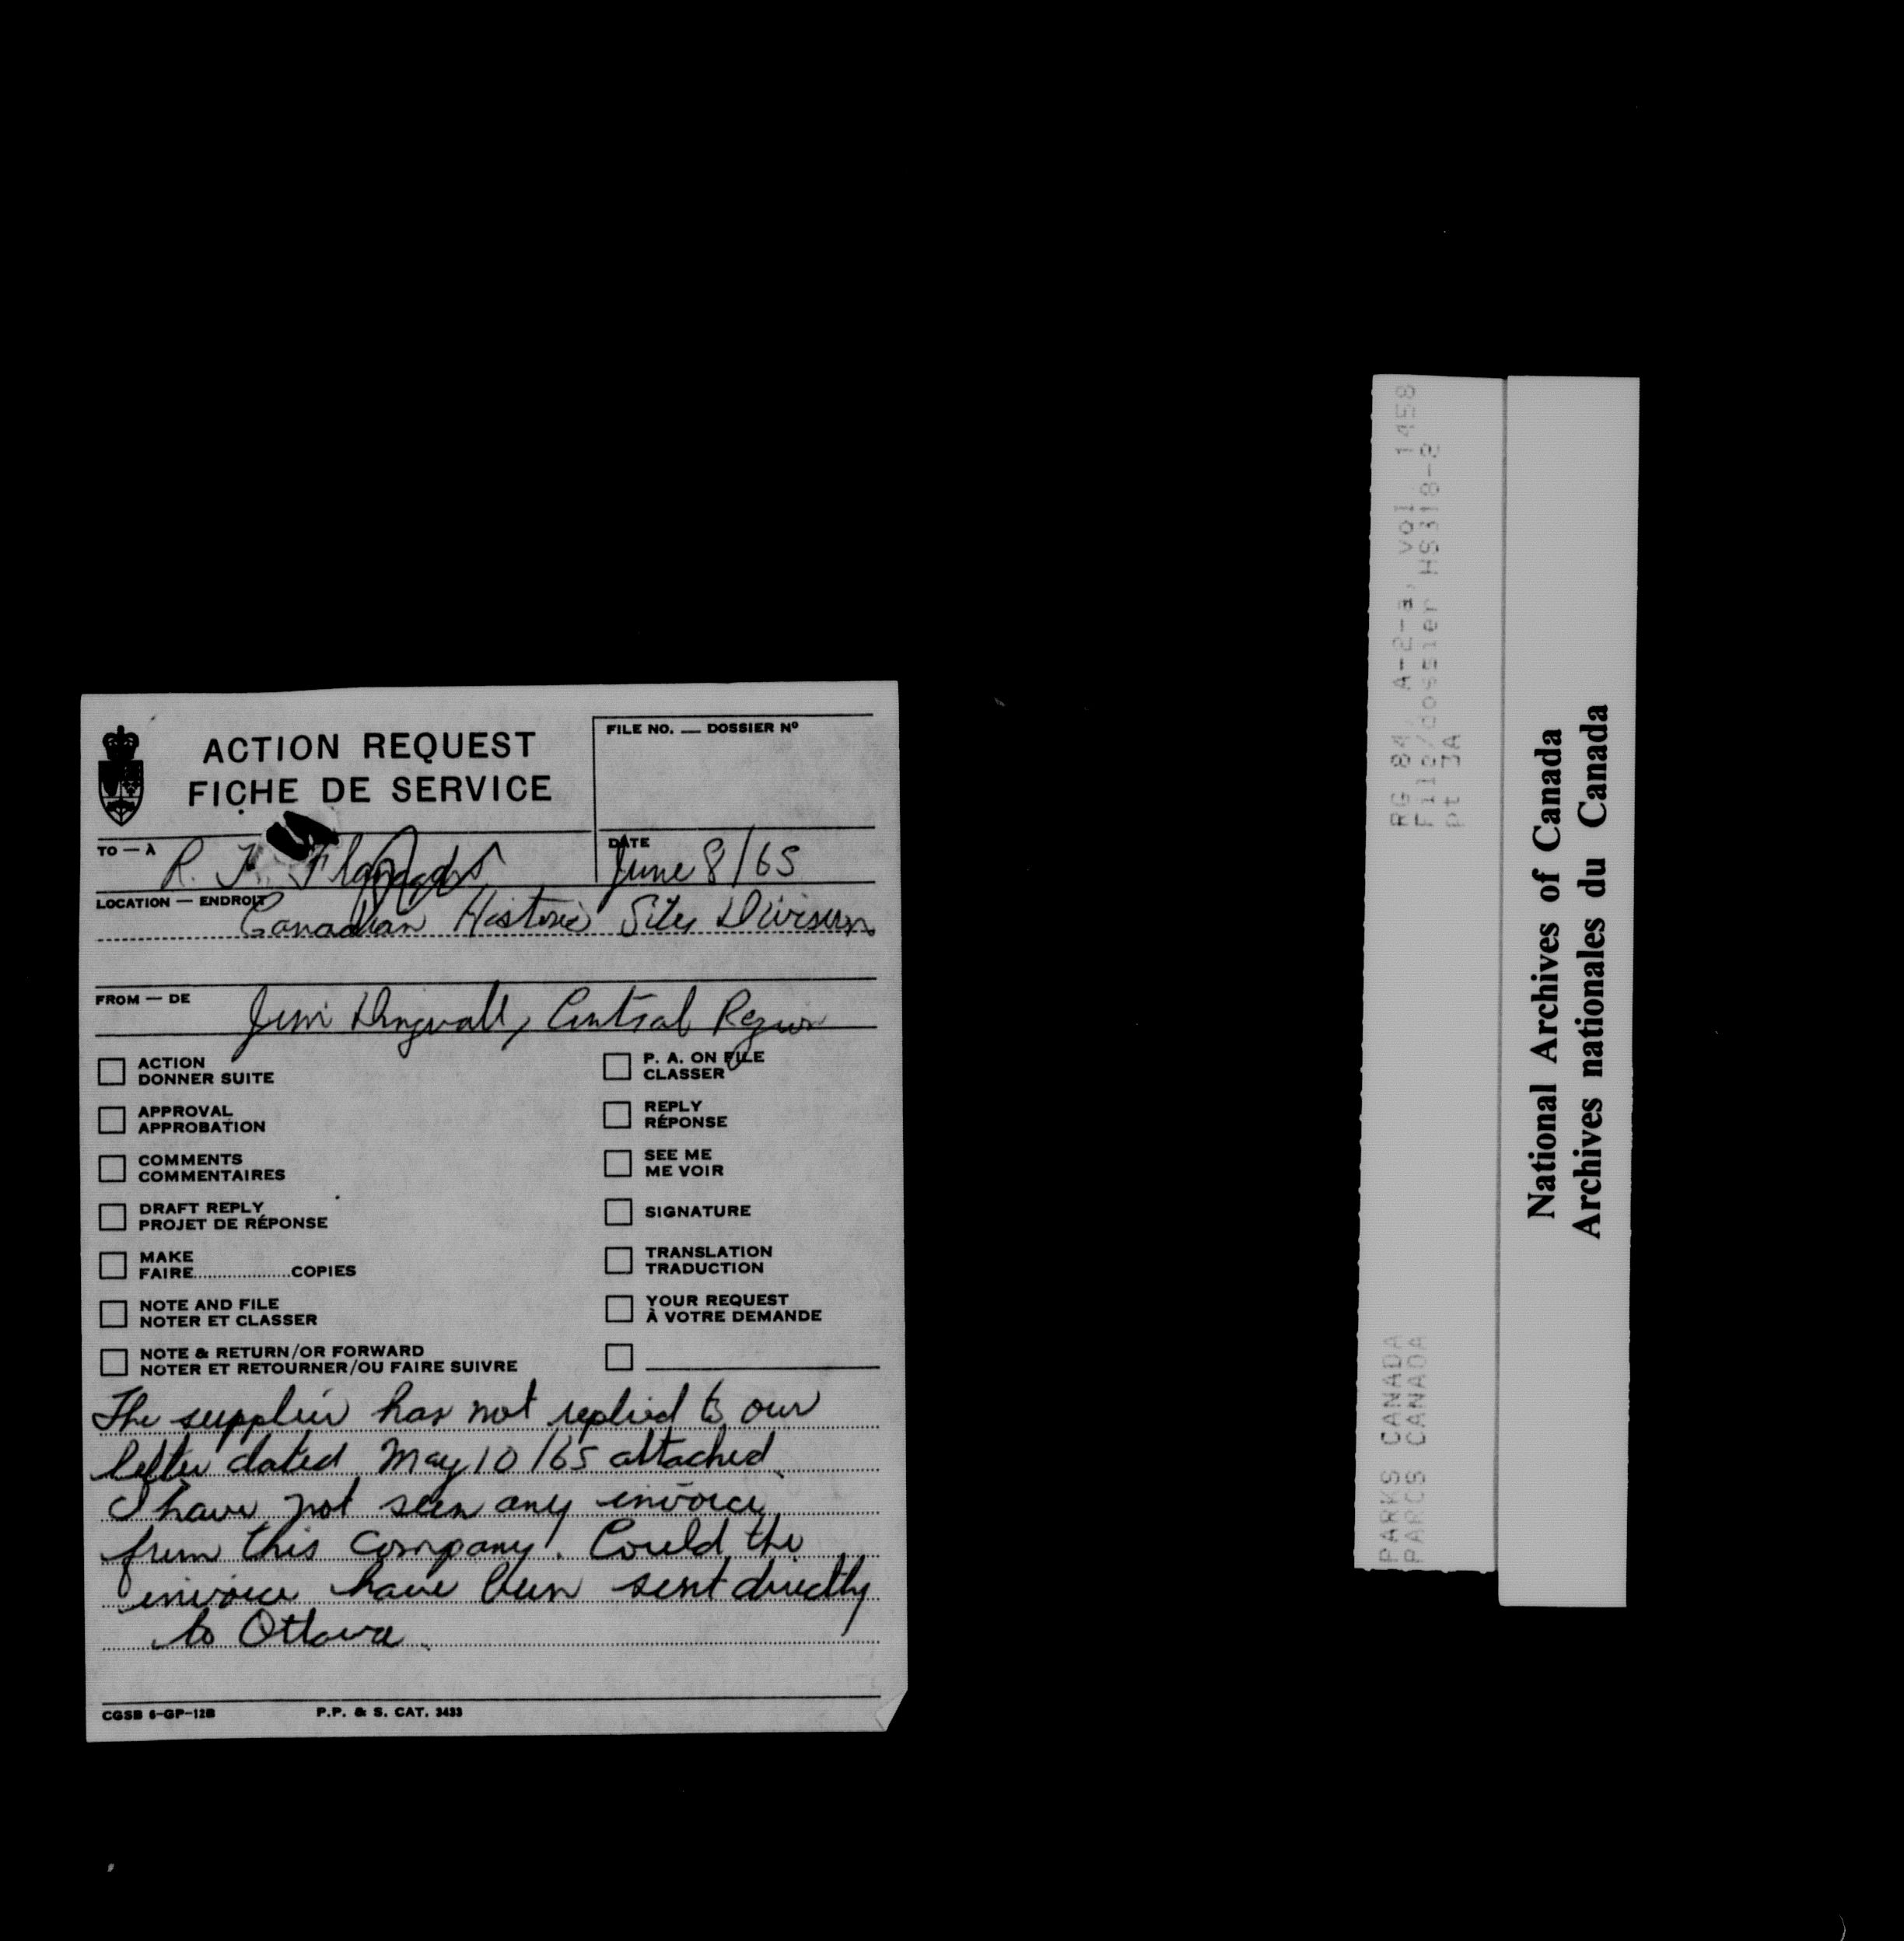 ACTION REQUEST
FICHE DE SERVICE
FILE NO. — DOSSIER Nº
TO — À R.
DATE June 8/65
LOCATION — ENDROIT Canadian Historic Sites Division
FROM — DE Jim Dingwall, Central Region
ACTION
DONNER SUITE
APPROVAL
APPROBATION
COMMENTS
COMMENTAIRES
DRAFT REPLY
PROJET DE RÉPONSE
MAKE
FAIRE...................COPIES
NOTE AND FILE
NOTER ET CLASSER
NOTE & RETURN/OR FORWARD
NOTER ET RETOURNER/OU FAIRE SUIVRE
P. A. ON FILE
CLASSER
REPLY
RÉPONSE
SEE ME
ME VOIR
SIGNATURE
TRANSLATION
TRADUCTION
YOUR REQUEST
À VOTRE DEMANDE
The supplier has not replied to our
letter dated May 10/65 attached.
I have not seen any invoice
from this company. Could the
invoice have been sent directly
to Ottawa.
CGSB 6-GP-12B P.P. & S. CAT. 3433
RG 84, A-2-a, vol 1458
File/dossier HS318-2
pt JA
PARKS CANADA
PARCS CANADA
National Archives of Canada
Archives nationales du Canada